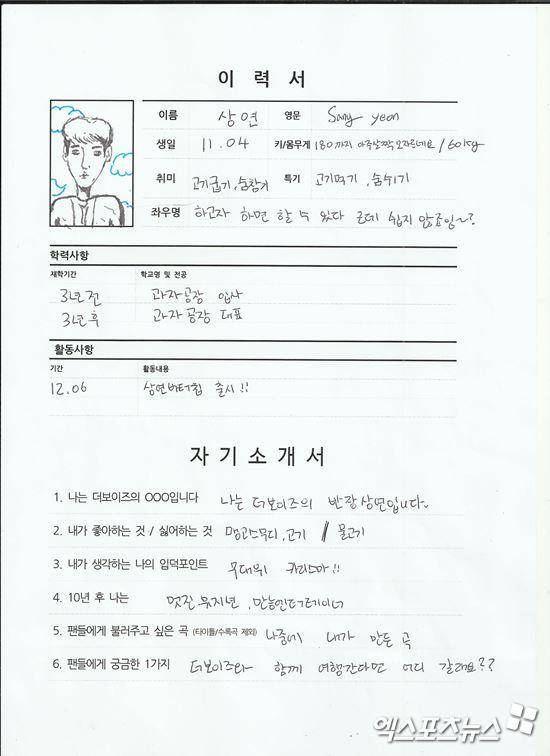 이 력 서
이름 상연 영문 Sang yeon
생일 11.04 키/몸무게 180까지 아주살짝 모자르네요 / 60kg
취미 고기굽기, 숨참기 특기 고기먹기, 숨쉬기
좌우명 하고자 하면 할 수 있다 근데 쉽지 않죠잉~?
학력사항
재학기간 학교명 및 전공
3년 전 과자공장 입사
3년 후 과자공장 대표
활동사항
기간 활동내용
12.06 상연버터칩 출시!!
자 기 소 개 서
1. 나는 더보이즈의 OOO입니다 나는 더보이즈의 반장 상연입니다.
2. 내가 좋아하는 것 / 싫어하는 것 망고스무디, 고기 / 물고기
3. 내가 생각하는 나의 입덕포인트 무대위 카리스마!!
4. 10년 후 나는 멋진 뮤지션, 만능엔터테이너
5. 팬들에게 불러주고 싶은 곡 (타이틀/수록곡 제외) 나중에 내가 만든 곡
6. 팬들에게 궁금한 1가지 더보이즈와 함께 여행간다면 어디 갈래요??
엑스포츠뉴스